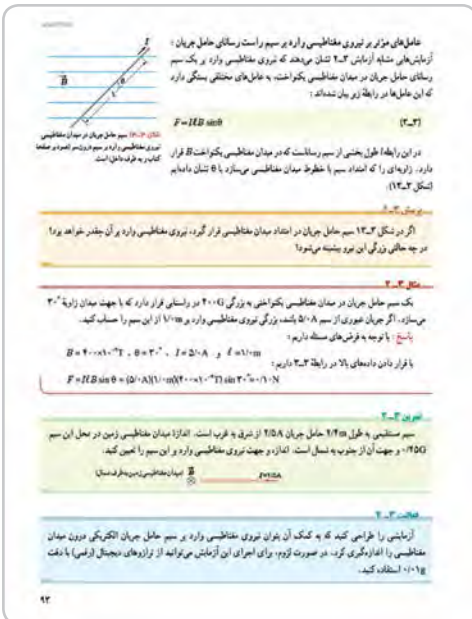 عامل‌های مؤثر بر نیروی مغناطیسی وارد بر سیم راست رسانای حامل جریان :
آزمایش‌هایی مشابه آزمایش ۳ــ۲ نشان می‌دهند که نیروی مغناطیسی وارد بر یک سیم
رسانای حامل جریان در میدان مغناطیسی یکنواخت، به عامل‌های مختلفی بستگی دارد
که این عامل‌ها در رابطهٔ زیر بیان شده‌اند :
F=IlB sinθ (۳ــ۳)
در این رابطه l طول بخشی از سیم رساناست که در میدان مغناطیسی یکنواخت B قرار
دارد. زاویه‌ای را که امتداد سیم با خطوط میدان مغناطیسی می‌سازد با θ نشان داده‌ایم
(شکل ۳ــ۱۳).
I
B
θ
l
سیم حامل جریان در میدان مغناطیسی
نیروی مغناطیسی وارد بر سیم درون‌سو (عمود بر صفحهٔ
کتاب و به طرف داخل) است.
اگر در شکل ۳ــ۱۳ سیم حامل جریان در امتداد میدان مغناطیسی قرار گیرد، نیروی مغناطیسی وارد بر آن چقدر خواهد بود؟
در چه حالتی بزرگی این نیرو بیشینه می‌شود؟
مثال ۳ــ۲
یک سیم حامل جریان در میدان مغناطیسی یکنواختی به بزرگی ۴۰۰G در راستایی قرار دارد که با جهت میدان زاویهٔ ۳۰°
می‌سازد. اگر جریان عبوری از سیم ۵/۰A باشد، بزرگی نیروی مغناطیسی وارد بر ۱/۰m از این سیم را حساب کنید.
پاسخ : با توجه به فرض‌های مسئله داریم :
B = ۴۰۰×۱۰⁻⁴T ، θ = ۳۰° ، I = ۵/۰A و l = ۱/۰m
با قرار دادن داده‌های بالا در رابطهٔ ۳ــ۳ داریم :
F = IlB sin θ = (۵/۰A)(۱/۰m)(۴۰۰×۱۰⁻⁴T) sin ۳۰° = ۰/۱۰N
تمرین ۳ــ۲
سیم مستقیمی به طول ۲/۴m حامل جریان ۲/۵A از شرق به غرب است. اندازهٔ میدان مغناطیسی زمین در محل این سیم
۰/۴۵G و جهت آن از جنوب به شمال است. اندازه و جهت نیروی مغناطیسی وارد بر این سیم را تعیین کنید.
B (میدان مغناطیسی زمین به طرف شمال)
I=۲/۵A
فعالیت ۳ــ۲
آزمایشی را طراحی کنید که به کمک آن بتوان نیروی مغناطیسی وارد بر سیم حامل جریان الکتریکی درون میدان
مغناطیسی را اندازه‌گیری کرد. در صورت لزوم، برای اجرای این آزمایش می‌توانید از ترازوهای دیجیتال (رقمی) با دقت
۰/۰۱g استفاده کنید.
۹۳